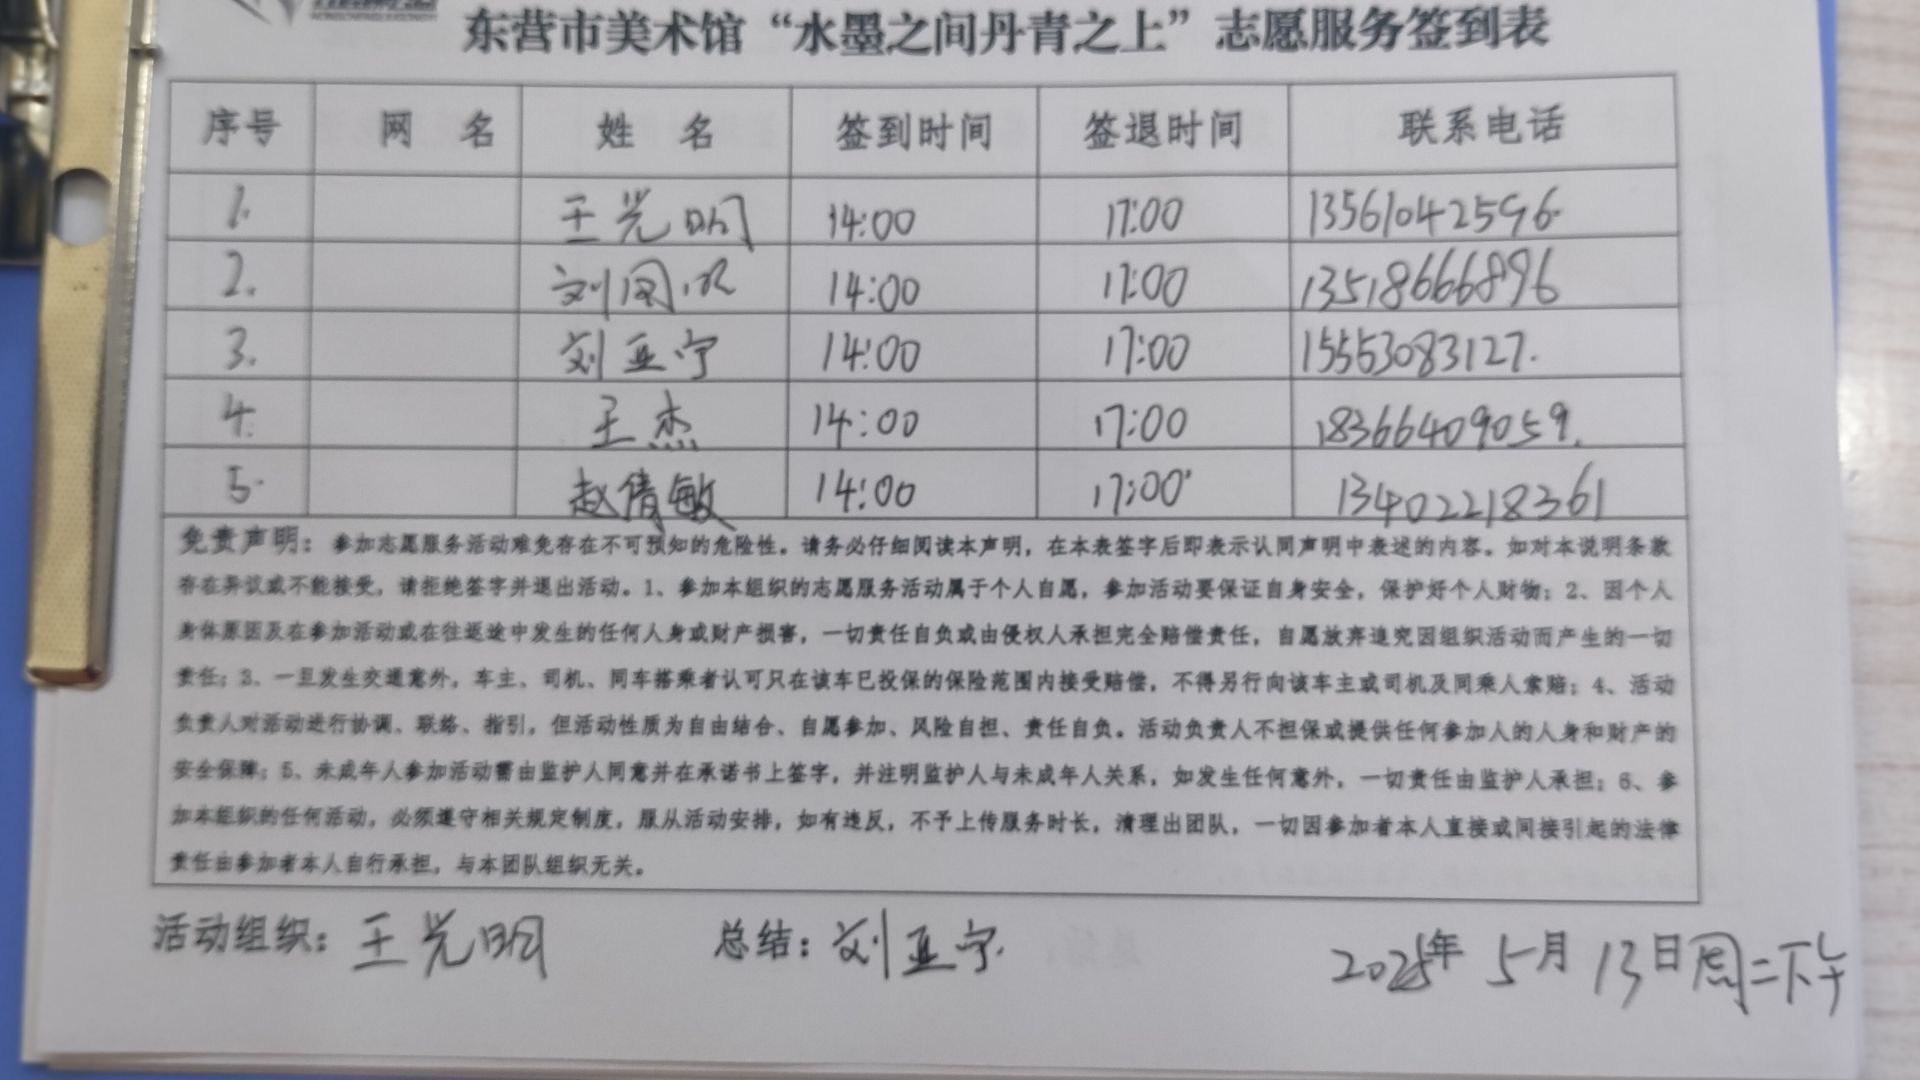 东营市美术馆“水墨之间丹青之上”志愿服务签到表
序号 网 名 姓 名 签到时间 签退时间 联系电话
1. 王光明 14:00 17:00 13561042596
2. 刘国 14:00 17:00 13518666896
3. 刘亚宁 14:00 17:00 15553083127.
4. 王杰 14:00 17:00 18366409059.
5. 赵倩敏 14:00 17:00 13402218361
免责声明：参加志愿服务活动难免存在不可预知的危险性。请务必仔细阅读本声明，在本表签字后即表示认同声明中表述的内容。如对本说明条款
存在异议或不能接受，请拒绝签字并退出活动。1、参加本组织的志愿服务活动属于个人自愿，参加活动要保证自身安全，保护好个人财物；2、因个人
身体原因及在参加活动或在往返途中发生的任何人身或财产损害，一切责任自负或由侵权人承担完全赔偿责任，自愿放弃追究因组织活动而产生的一切
责任；3、一旦发生交通意外，车主、司机、同车搭乘者认可只在该车已投保的保险范围内接受赔偿，不得另行向该车主或司机及同乘人索赔；4、活动
负责人对活动进行协调、联络、指引，但活动性质为自由结合、自愿参加、风险自担、责任自负。活动负责人不担保或提供任何参加人的人身和财产的
安全保障；5、未成年人参加活动需由监护人同意并在承诺书上签字，并注明监护人与未成年人关系，如发生任何意外，一切责任由监护人承担；6、参
加本组织的任何活动，必须遵守相关规定制度，服从活动安排，如有违反，不予上传服务时长，清理出团队，一切因参加者本人直接或间接引起的法律
责任由参加者本人自行承担，与本团队组织无关。
活动组织：王光明 总结：刘亚宁 2025年 5月 13日周二下午